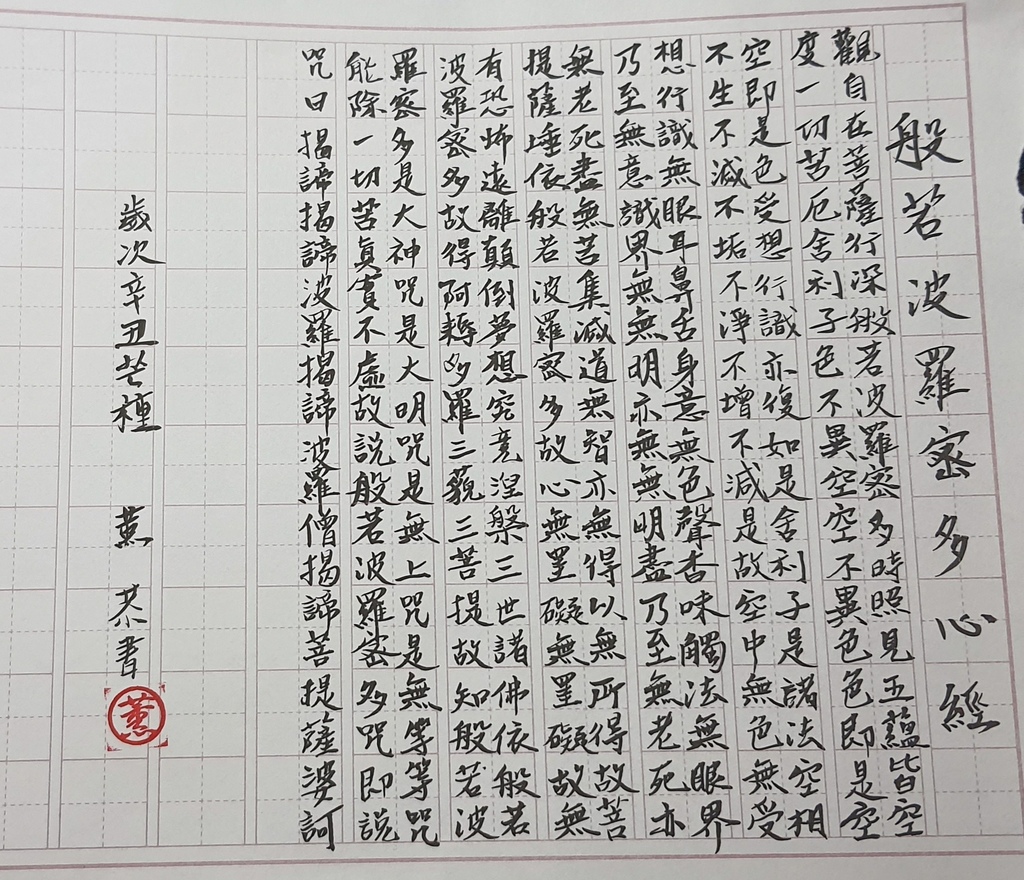 般若波羅密多心經
觀自在菩薩行深般若波羅密多時照見五蘊皆空
度一切苦厄舍利子色不異空空不異色色即是空
空即是色受想行識亦復如是舍利子是諸法空相
不生不滅不垢不淨不增不減是故空中無色無受
想行識無眼耳鼻舌身意無色聲香味觸法無眼界
乃至無意識界無無明亦無無明盡乃至無老死亦
無老死盡無苦集滅道無智亦無得以無所得故菩
提薩埵依般若波羅密多故心無罣礙無罣礙故無
有恐怖遠離顛倒夢想究竟涅槃三世諸佛依般若
波羅密多故得阿耨多羅三藐三菩提故知般若波
羅密多是大神咒是大明咒是無上咒是無等等咒
能除一切苦真實不虛故說般若波羅密多咒即說
咒曰揭諦揭諦波羅揭諦波羅僧揭諦菩提薩婆訶
歲次辛丑芒種 薰 恭書
薰